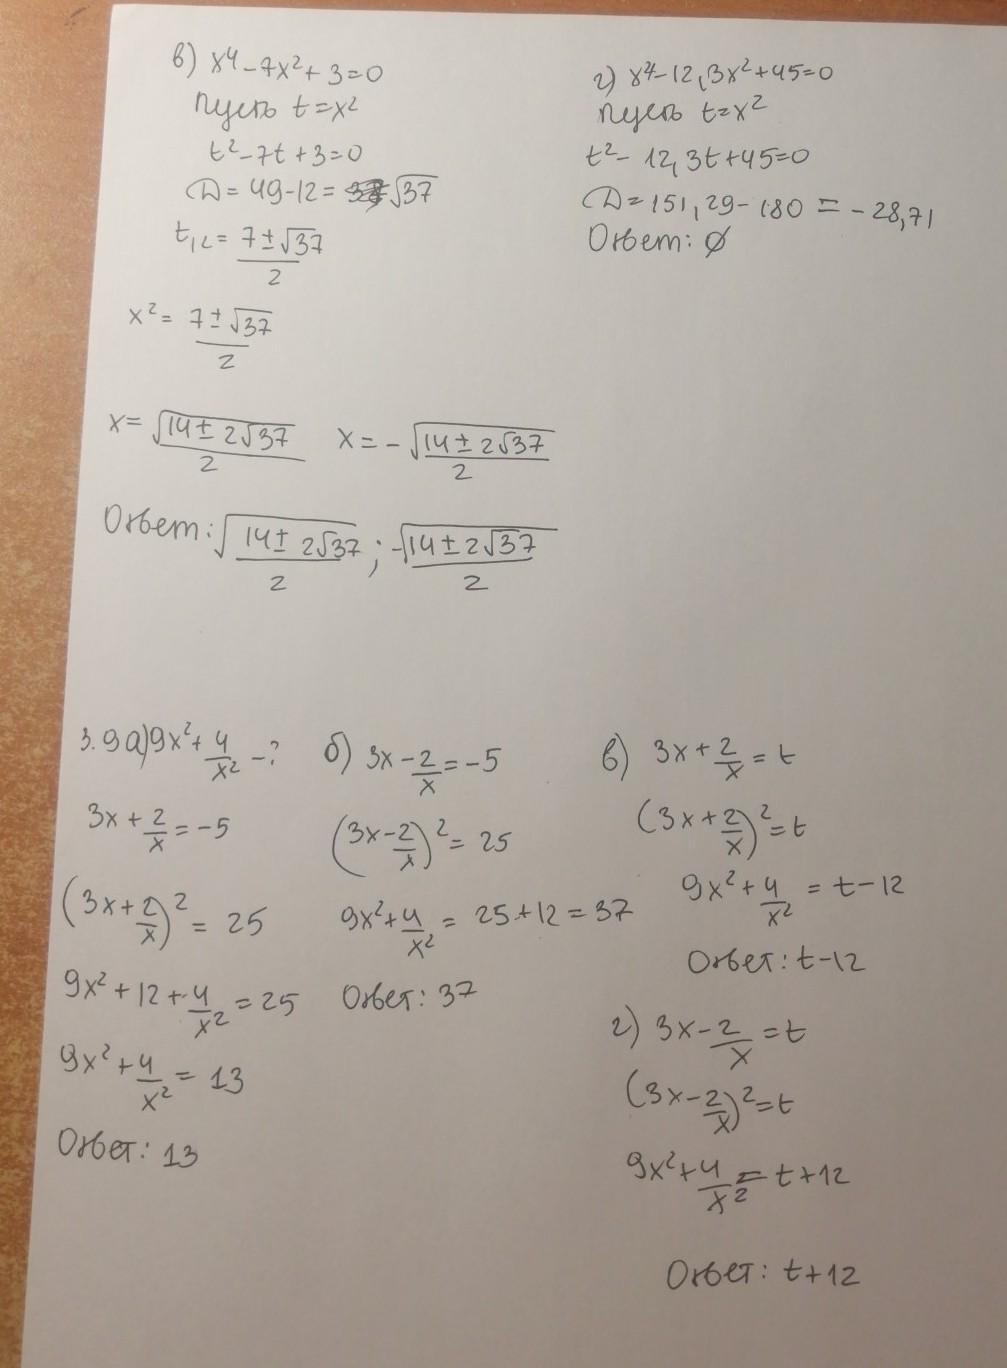 в) x⁴-7x²+3=0
Пусть t=x²
t²-7t+3=0
D=49-12=√37
t₁,₂= (7±√37)/2
x²= (7±√37)/2
x= √(14±2√37)/2 x=-√(14±2√37)/2
Ответ: √(14±2√37)/2 ; -√(14±2√37)/2
г) x⁴-12,3x²+45=0
Пусть t=x²
t²-12,3t+45=0
D=151,29-180=-28,71
Ответ: ∅
3.9 а) 9x²+4/x² -?
3x+2/x=-5
(3x+2/x)²=25
9x²+12+4/x²=25
9x²+4/x²=13
Ответ: 13
б) 3x-2/x=-5
(3x-2/x)²=25
9x²+4/x²=25+12=37
Ответ: 37
в) 3x+2/x=t
(3x+2/x)²=t
9x²+4/x²=t-12
Ответ: t-12
г) 3x-2/x=t
(3x-2/x)²=t
9x²+4/x²=t+12
Ответ: t+12